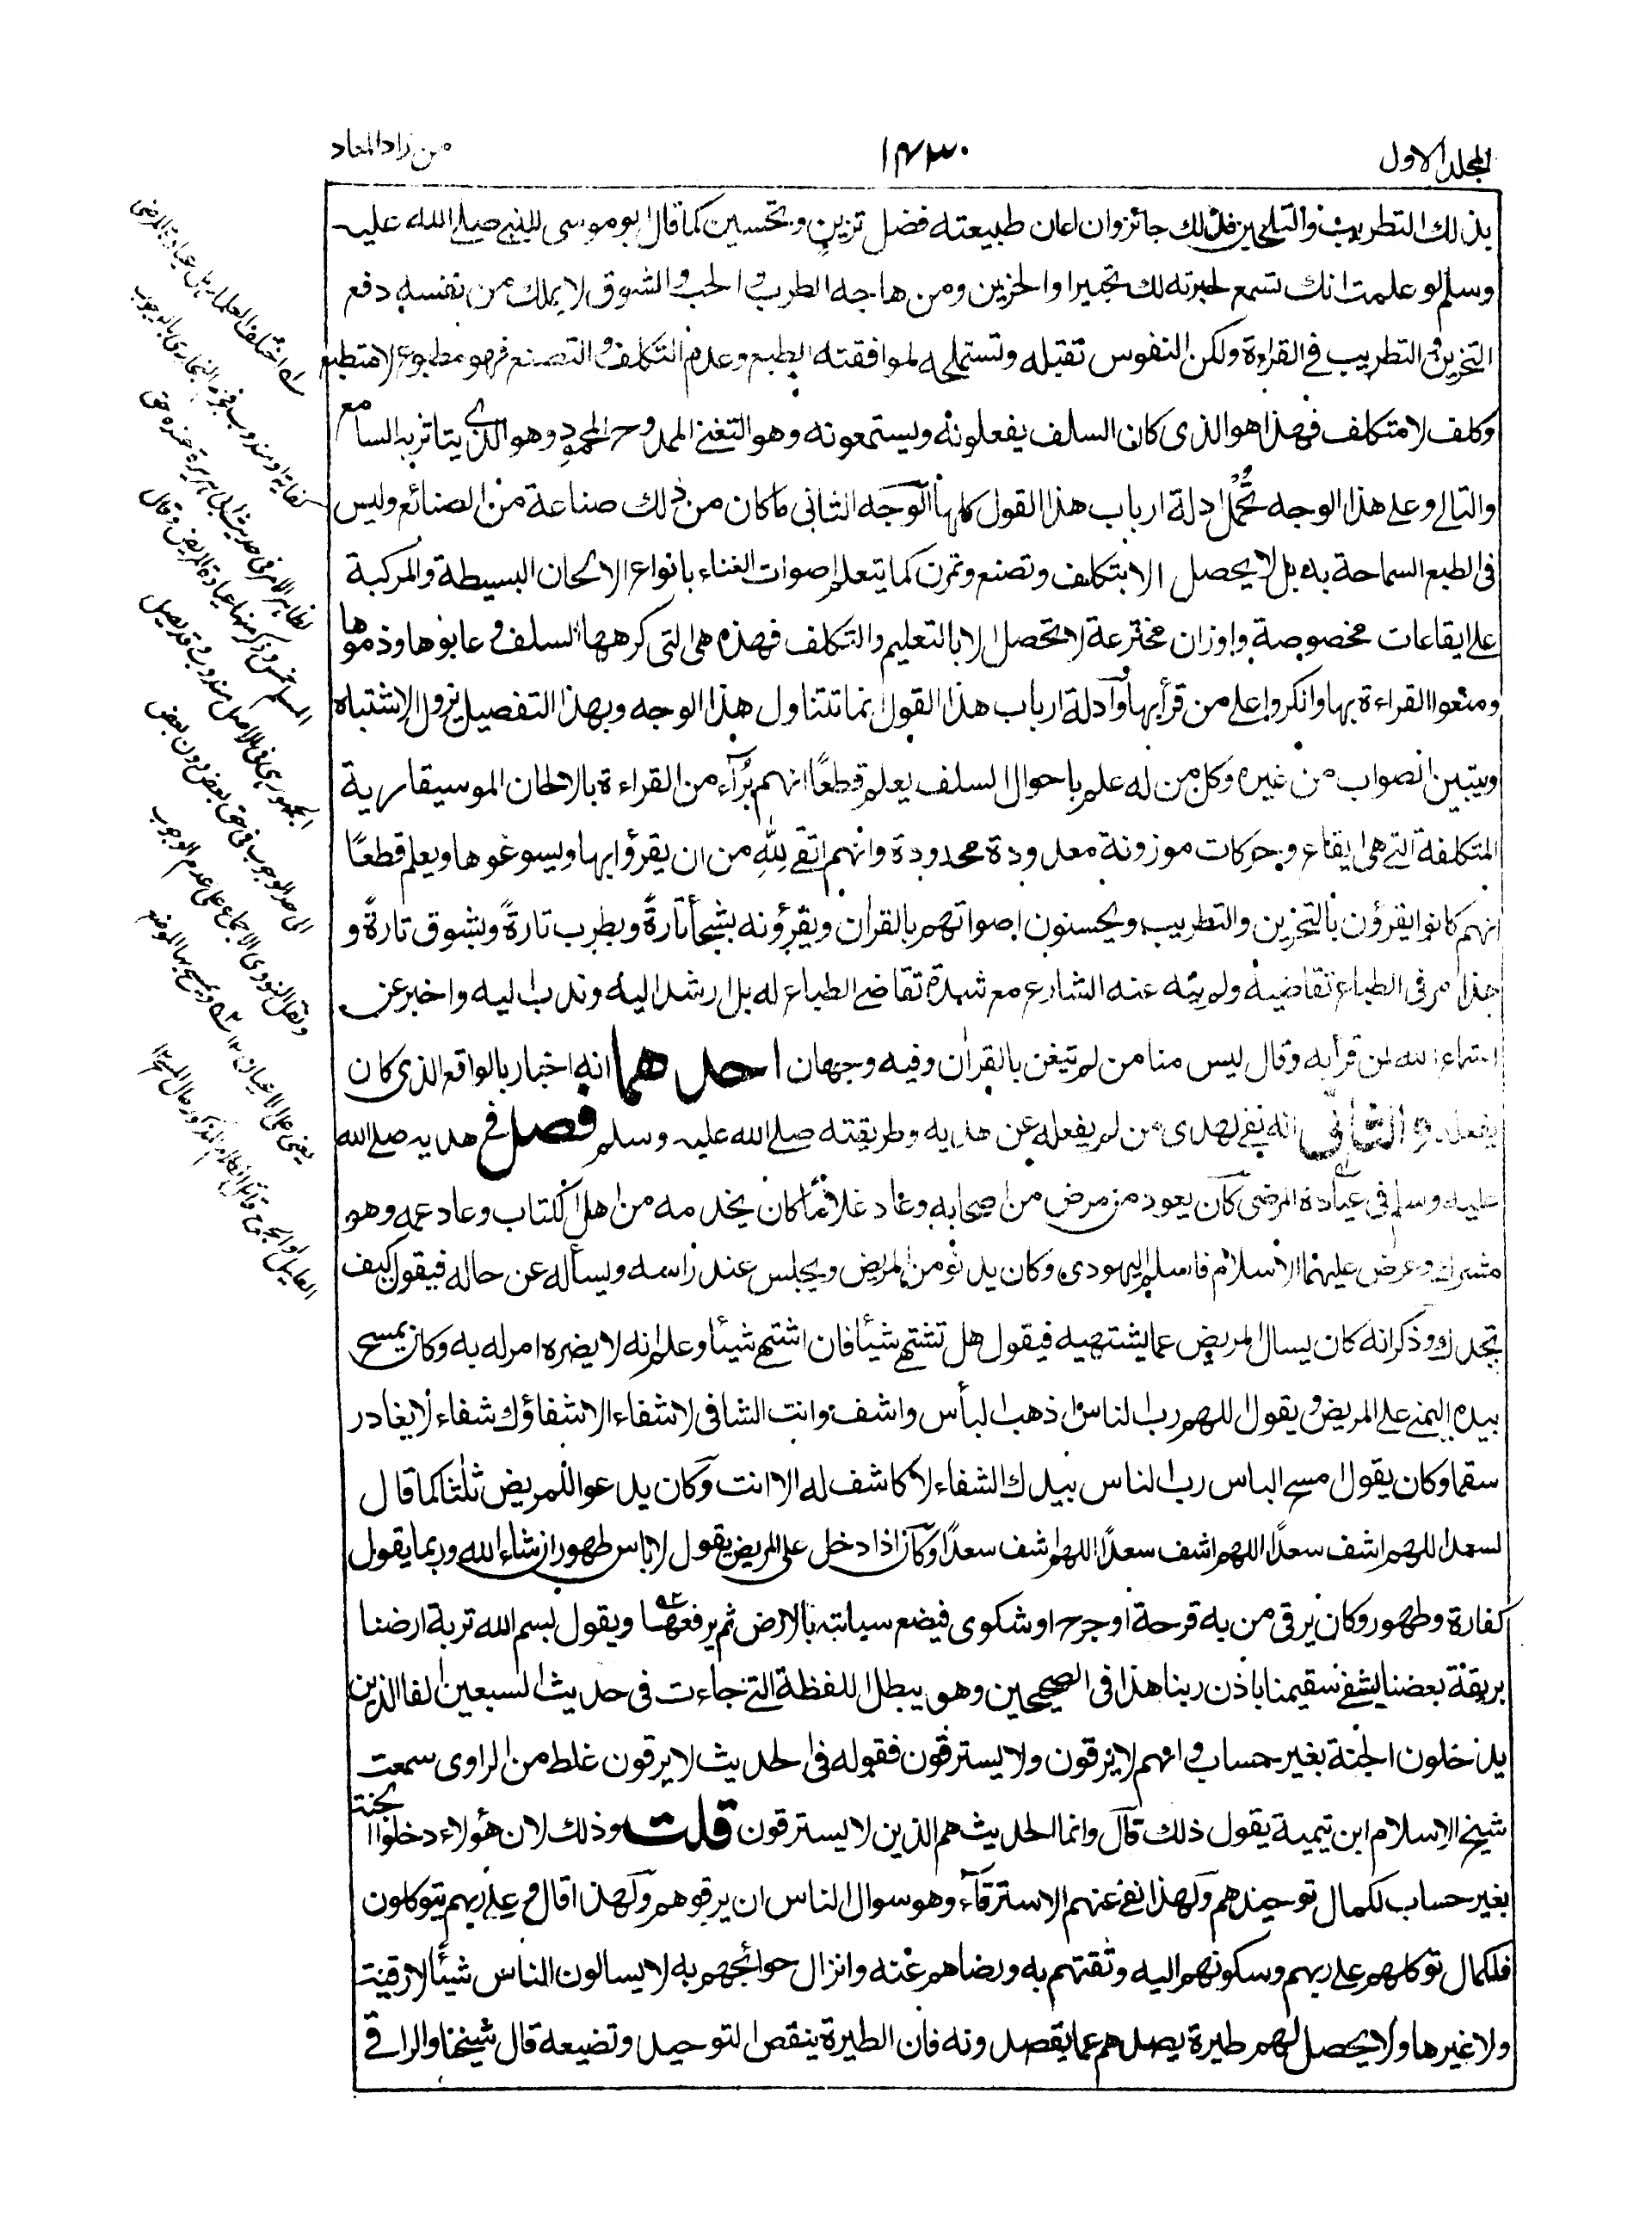 المجلد الاول
١٤٣٠
من زاد المعاد
بذلك التطريب والتلحين فذلك جائز وان اعان طبيعته فضل تزيين وتحسين كما قال ابو موسى للنبي صلے الله عليه
وسلم لو علمت انك تسمع لحبرته لك تحبيرا والحزين ومن هاجه الطرب والحب والشوق لا يملك من نفسه دفع
التحزين والتطريب في القراءة ولكن النفوس تقبله وتستملحه لموافقته الطبع وعدم التكلف والتصنع فهو مطبوع لا متطبع
وكلف لا متكلف فهذا هو الذى كان السلف يفعلونه ويستمعونه وهو التغني الممدوح المحمود وهو الذي يتاثر به السامع
والتالي وعلى هذا الوجه تُحمل ادلة ارباب هذا القول كلها الوجه الثانى ما كان من ذلك صناعة من الصنائع وليس
فى الطبع السماحة به بل لا يحصل الا بتكلف وتصنع وتمرن كما يتعلم اصوات الغناء بانواع الالحان البسيطة والمركبة
على ايقاعات مخصوصة واوزان مخترعة لا تحصل الا بالتعليم والتكلف فهذه هى التى كرهها السلف وعابوها وذموها
ومنعوا القراءة بها وانكروا على من قرأ بها وادلة ارباب هذا القول انما تتناول هذا الوجه وبهذا التفصيل يزول الاشتباه
ويتبين الصواب من غيره وكل من له علم باحوال السلف يعلم قطعًا انهم بُرآء من القراءة بالالحان الموسيقارية
المتكلفة التے هى ايقاع وحركات موزونة معدودة محدودة وانهم اتقے لِلّٰهِ من ان يقرؤا بها ويسوغوها ويعلم قطعًا
انهم كانوا يقرؤن بالتحزين والتطريب ويحسنون اصواتهم بالقران ويقرؤنه بشجأ تارةً وبطرب تارةً وبشوق تارةً و
هذا امر فى الطباع تقاضيه ولم ينه عنه الشارع مع شدة تقاضے الطباع له بل ارشد اليه وندب اليه واخبر عن
استماع الله لمن قرأ به وقال ليس منا من لم يتغن بالقران وفيه وجهان احدهما انه اخبار بالواقع الذى كان
يفعله والثانى انه نفے لهدى من لم يفعله عن هديه وطريقته صلے الله عليه وسلم فصل فے هديه صلے الله
عليه وسلم فى عيادة المرضى كان يعود من مرض من اصحابه وعاد غلامًا كان يخدمه من اهل الكتاب وعاد عمه وهو
مشرك وعرض عليهما الاسلام فاسلم اليهودى وكان يدنو من المريض ويجلس عند راسه ويسأله عن حاله فيقول كيف
تجدك وذكر انه كان يسال المريض عما يشتهيه فيقول هل تشتهي شيئا فان اشتهى شيئا وعلم انه لا يضره امر له به وكان يمسح
بيده اليمنے على المريض ويقول اللهم رب الناس اذهب البأس واشف وانت الشافى لا شفاء الا شفاؤك شفاء لا يغادر
سقما وكان يقول امسح الباس رب الناس بيدك الشفاء لا كاشف له الا انت وكان يدعو للمريض ثلثا كما قال
لسعد اللهم اشف سعدًا اللهم اشف سعدًا اللهم اشف سعدًا وكان اذا دخل على المريض يقول لا باس طهور ان شاء الله وربما يقول
كفارة وطهور وكان يرقى من به قرحة او جرح او شكوى فيضع سبابته بالارض ثم يرفعها ويقول بسم الله تربة ارضنا
بريقة بعضنا يشفے سقيمنا باذن ربنا هذا فى الصحيحين وهو يبطل اللفظة التے جاءت فى حديث السبعين الفا الذين
يدخلون الجنة بغير حساب وانهم لا يرقون ولا يسترقون فقوله فى الحديث لا يرقون غلط من الراوى سمعت
شيخ الاسلام ابن تيمية يقول ذلك قال وانما الحديث هم الذين لا يسترقون قلت وذلك لان هؤلاء دخلوا الجنة
بغير حساب لكمال توحيدهم ولهذا نفے عنهم الاسترقاء وهو سوال الناس ان يرقوهم ولهذا قال وعلى ربهم يتوكلون
فلكمال توكلهم على ربهم وسكونهم اليه وثقتهم به ورضاهم عنه وانزال حوائجهم به لا يسالون الناس شيئا لا رقية
ولا غيرها ولا يحصل لهم طيرة يصدهم عما يقصدونه فان الطيرة ينقص التوحيد وتضيعه قال شيخنا والراقے